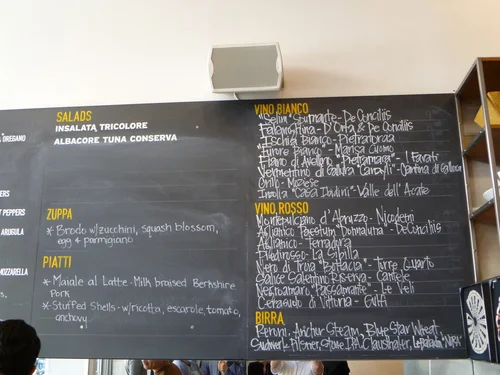 OREGANO
PEPPERS
ARUGULA
MOZZARELLA
SALADS
INSALATA TRICOLORE
ALBACORE TUNA CONSERVA
ZUPPA
* Brodo w/zucchini, squash blossom,
egg & parmigiano
PIATTI
* Maiale al Latte - Milk braised Berkshire
Pork
* Stuffed Shells - w/ricotta, escarole, tomato,
anchovy
VINO BIANCO
"Selim" Spumante - De Conciliis
Falanghina - D'Orta & De Conciliis
Ischia Bianco - Pietratorcia
"Furore Bianco" - Marisa Cuomo
Fiano di Avellino "Pietramara" - I Favati
Vermentino di Gallura - Cantina di Gallura
Grillo -
Inzolia - Valle dell' Acate
VINO ROSSO
Montepulciano d'Abruzzo -
Aglianico Paestum "Donnaluna" - DeConciliis
Aglianico - Terredora
Piedirosso - La Sibilla
Nero di Troia - Torre Quarto
Salice Salentino Riserva - Cantele
Negroamaro - Li Veli
Cerasuolo di Vittoria - Gulfi
BIRRA
Peroni, Anchor Steam, Blue Star Wheat,
Pilsner, Stone IPA, Clausthaler,